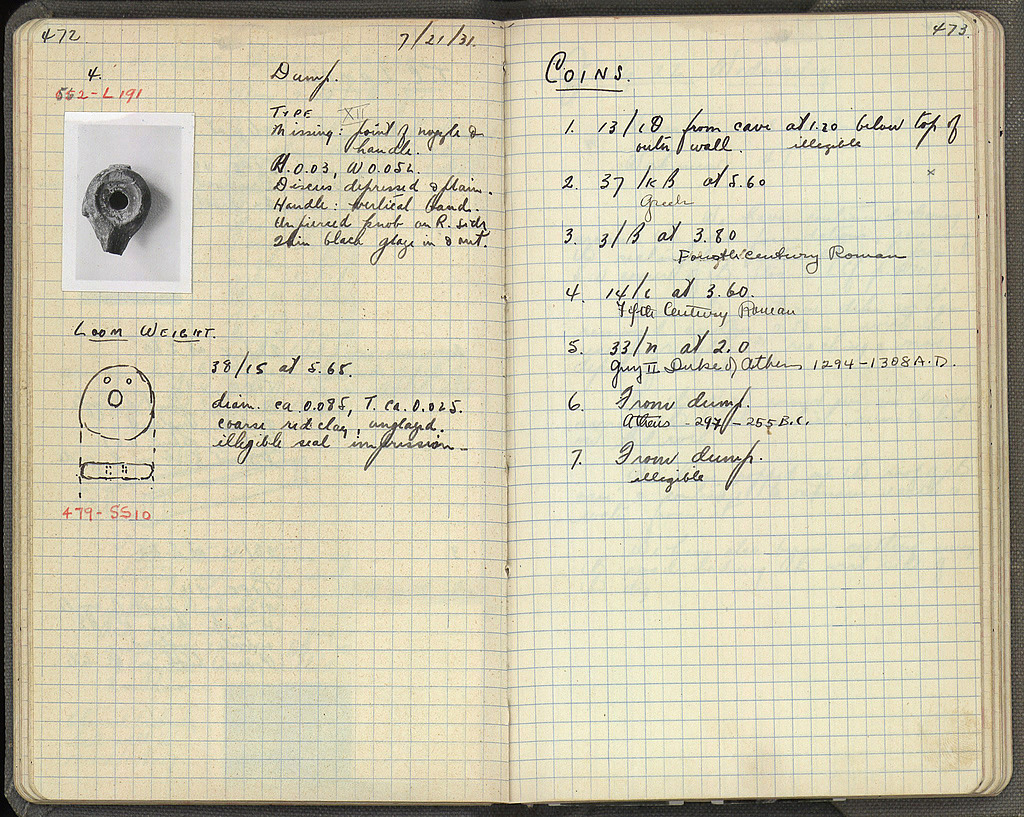 472
7/21/31.
4.
552-L191
Dump.
TYPE XII
Missing: point of nozzle &
handle.
H.0.03, W 0.052.
Discus depressed & plain.
Handle: vertical band.
Unpierced knob on R. side
Thin black glaze in & out.
LOOM WEIGHT.
38/15 at 5.65.
diam. ca 0.085, T. ca. 0.025.
coarse red clay, unglazed.
illegible seal impression.
479-SS10
473.
COINS.
1. 13/ from cave at 1.20 below top of
outer wall. illegible
2. 37/ΚΒ at 5.60
Greek
3. 3/Β at 3.80
Fourth century Roman
4. 14/ at 3.60.
Fifth Century Roman
5. 33/ at 2.0
Guy II Duke of Athens 1294-1308 A.D.
6. From dump.
Athens -297-255 B.C.
7. From dump.
illegible